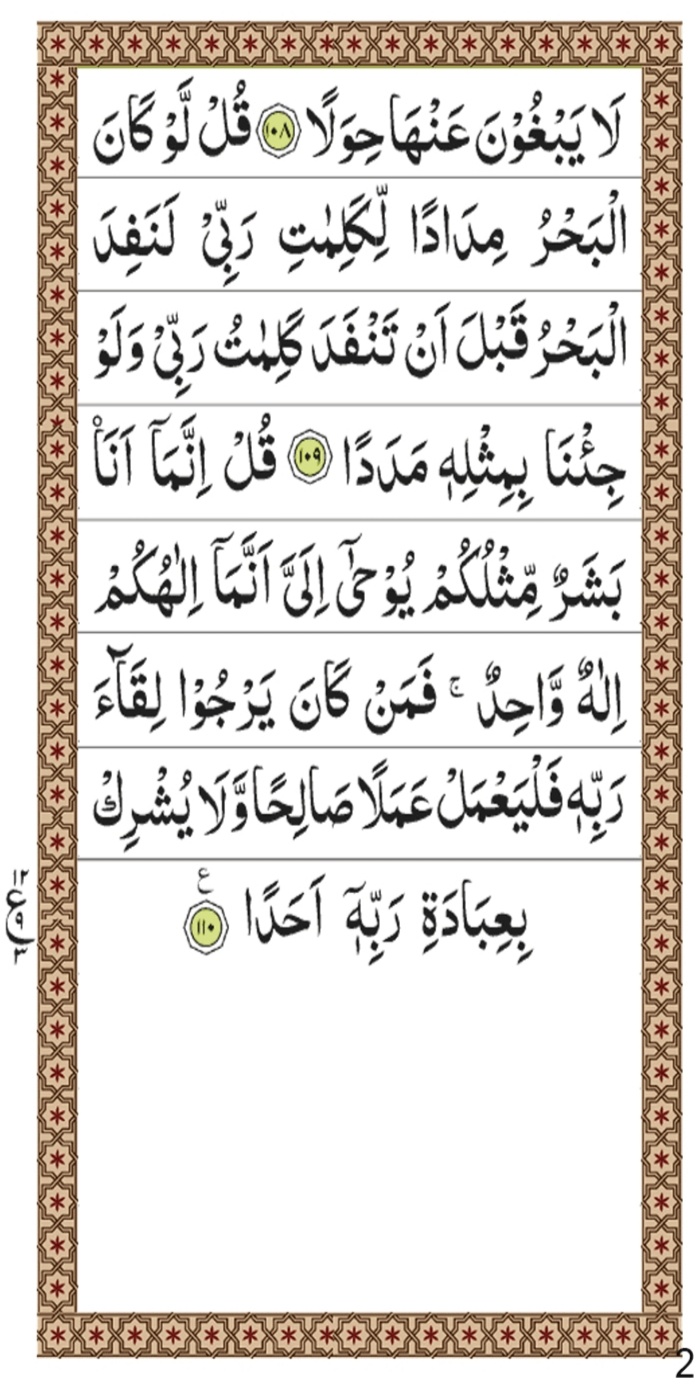 لَا يَبْغُوْنَ عَنْهَا حِوَلًا ۝١٠٨ قُلْ لَّوْ كَانَ
الْبَحْرُ مِدَادًا لِّكَلِمٰتِ رَبِّیْ لَنَفِدَ
الْبَحْرُ قَبْلَ اَنْ تَنْفَدَ كَلِمٰتُ رَبِّیْ وَلَوْ
جِئْنَا بِمِثْلِهٖ مَدَدًا ۝١٠٩ قُلْ اِنَّمَاۤ اَنَا۠
بَشَرٌ مِّثْلُكُمْ يُوْحٰۤی اِلَیَّ اَنَّمَاۤ اِلٰهُكُمْ
اِلٰهٌ وَّاحِدٌ ۚ فَمَنْ كَانَ يَرْجُوْا لِقَآءَ
رَبِّهٖ فَلْيَعْمَلْ عَمَلًا صَالِحًا وَّلَا يُشْرِكْ
بِعِبَادَةِ رَبِّهٖۤ اَحَدًا ۝١١٠ ع
١٢
ع ٩
٣
2